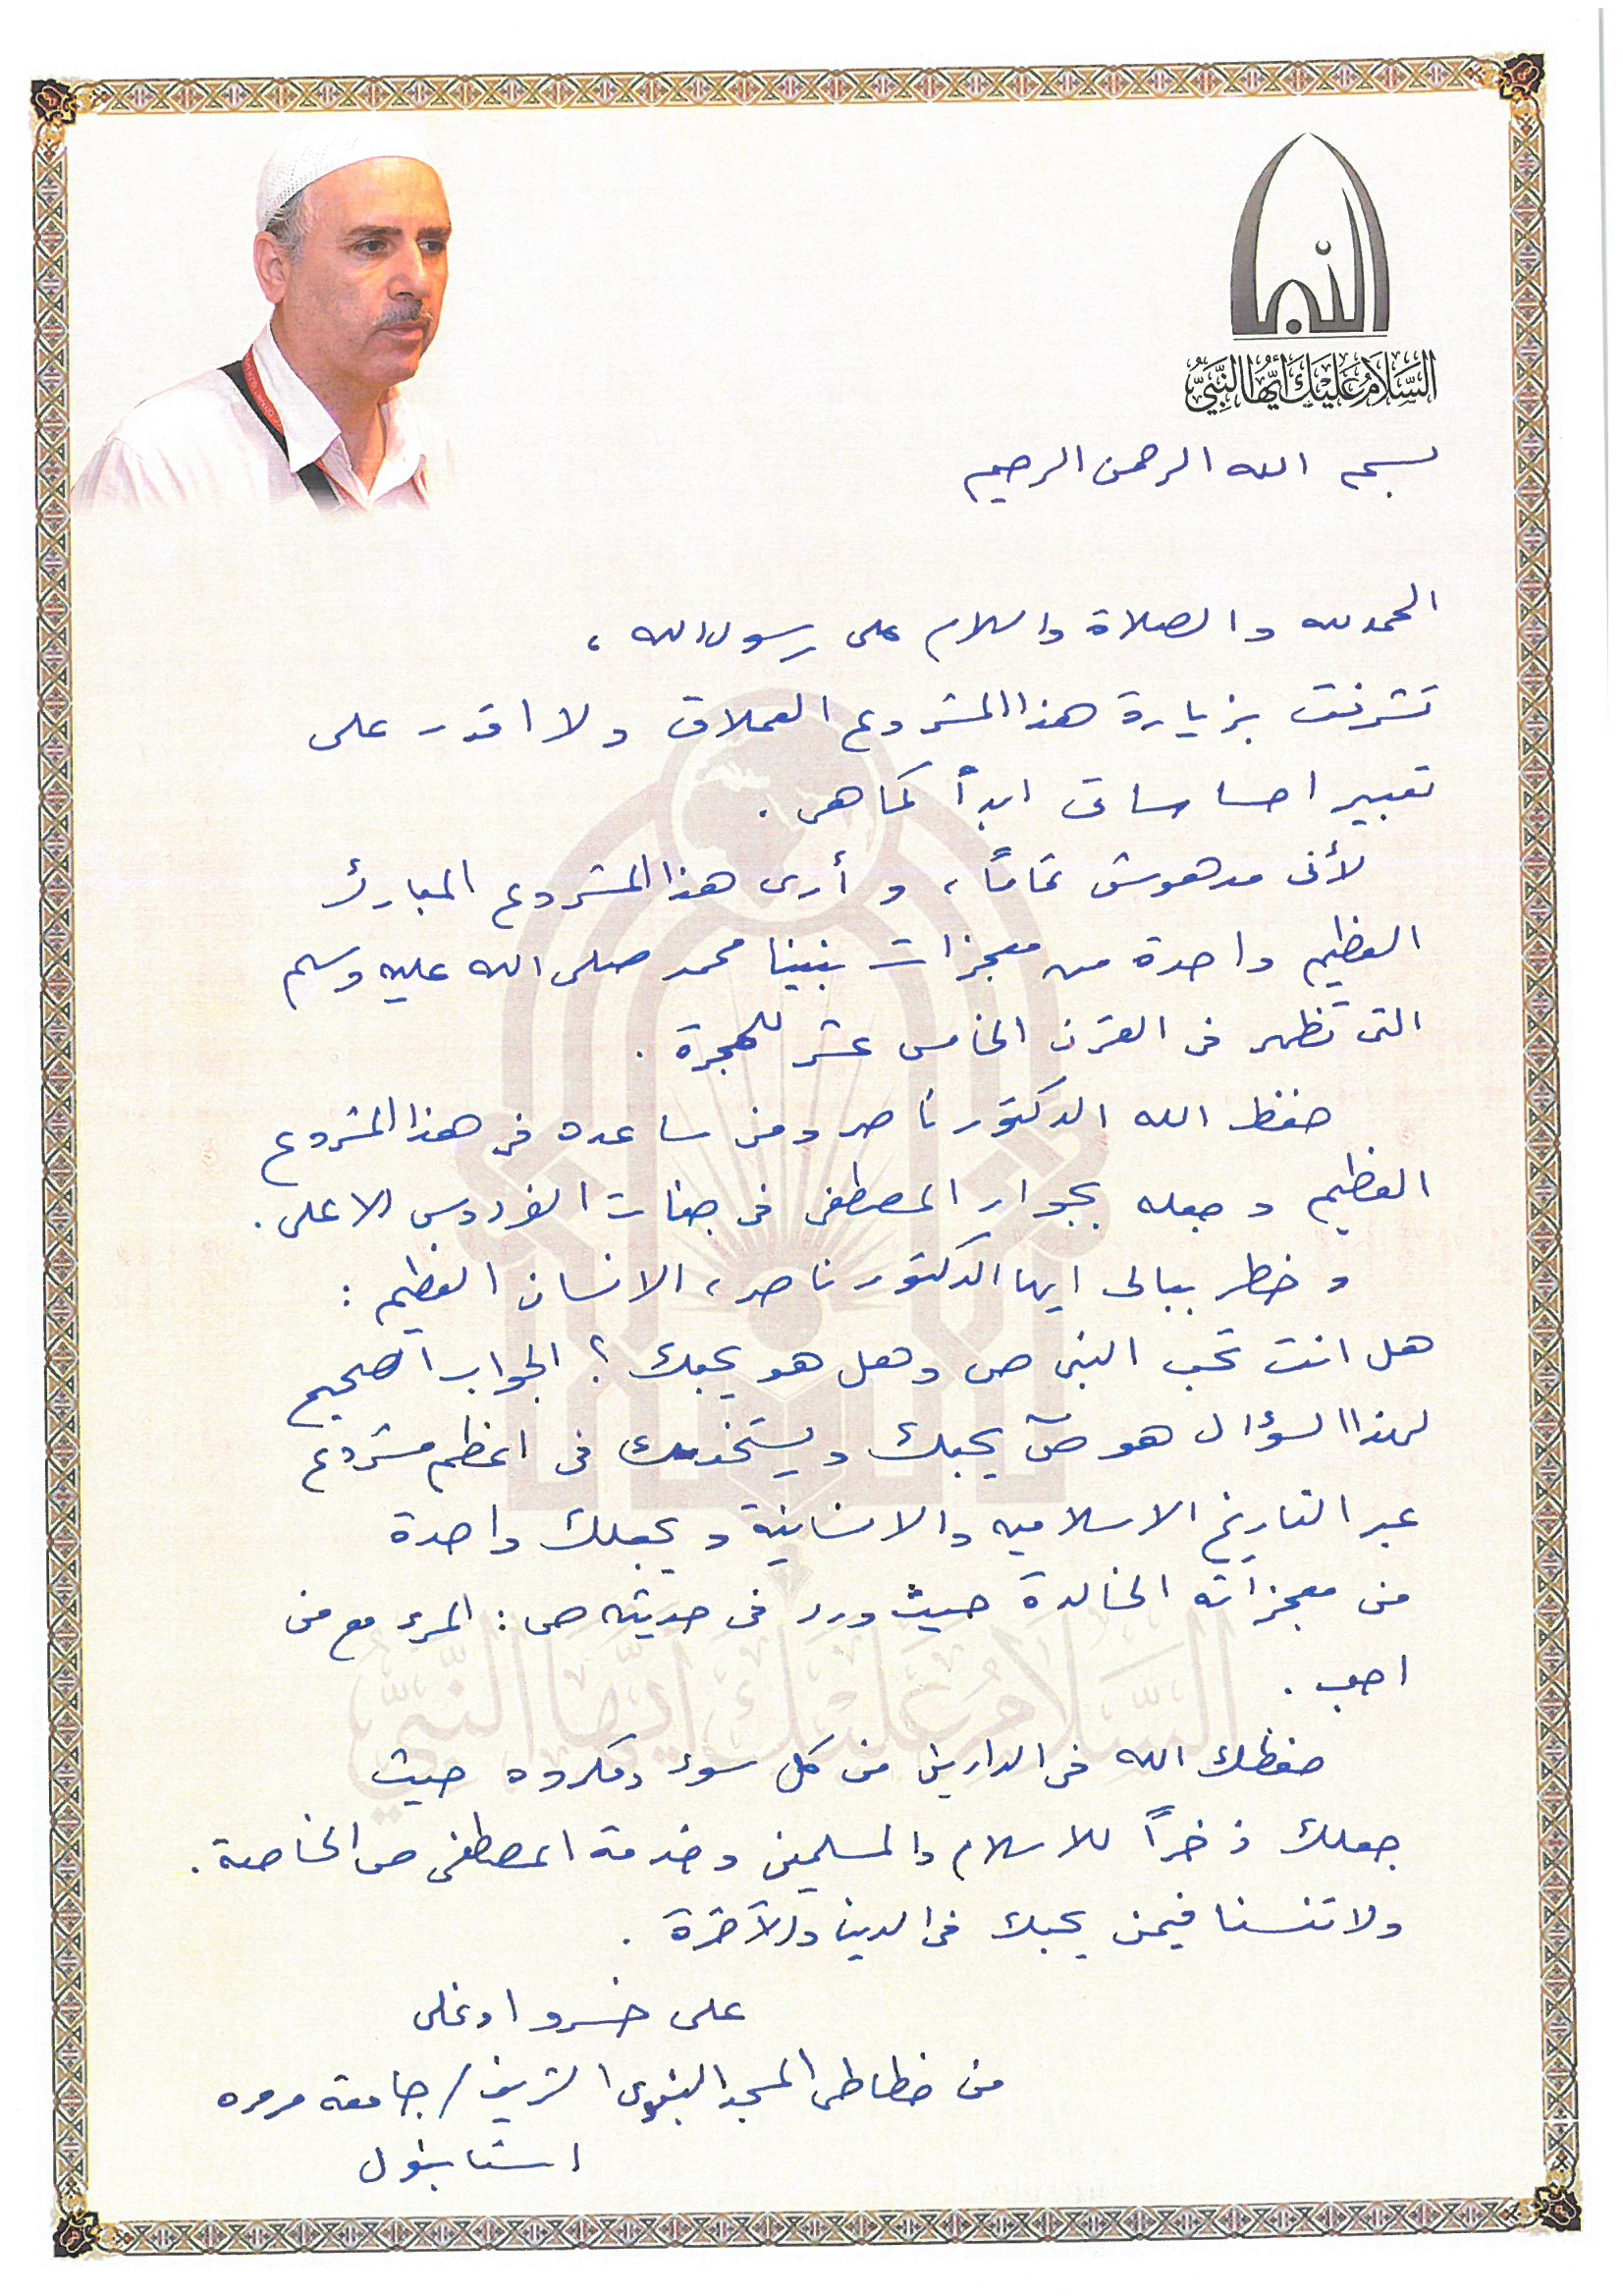 السَّلَامُ عَلَيْكَ أَيُّهَا النَّبِيُّ
بسم الله الرحمن الرحيم
الحمد لله والصلاة والسلام على رسول الله ،
تشرفت بزيارة هذا المشروع العملاق ولا اقدر على
تعبير احساساتى ابدأ كما هى .
لأنى مدهوش تماماً ، و أرى هذا المشروع المبارك
العظيم واحدة من معجزات نبينا محمد صلى الله عليه وسلم
التى تظهر فى القرن الخامس عشر للهجرة .
حفظ الله الدكتور ناصر ومن ساعده فى هذا المشروع
العظيم وجعله بجوار المصطفى فى جنات الفردوس الاعلى .
و خطر ببالى ايها الدكتور ناصر ، الانسان العظيم :
هل انت تحب النبى ص وهل هو يحبك ؟ الجواب الصحيح
لهذا السؤال هو ص يحبك ويستخدمك فى اعظم مشروع
عبر التاريخ الاسلاميه والانسانية ويجعلك واحدة
من معجزاته الخالدة حيث ورد فى حديثه ص : المرء مع من
احب .
حفظك الله فى الدارين من كل سوء ومكروه حيث
جعلك ذخراً للاسلام والمسلمين وخدمة المصطفى ص الخاصة .
ولا تنسنا فيمن يحبك فى الدنيا والآخرة .
على خسرو اوغلى
من خطاطى المسجد النبوى الشريف / جامعة مرمره
استانبول
السَّلَامُ عَلَيْكَ أَيُّهَا النَّبِيُّ